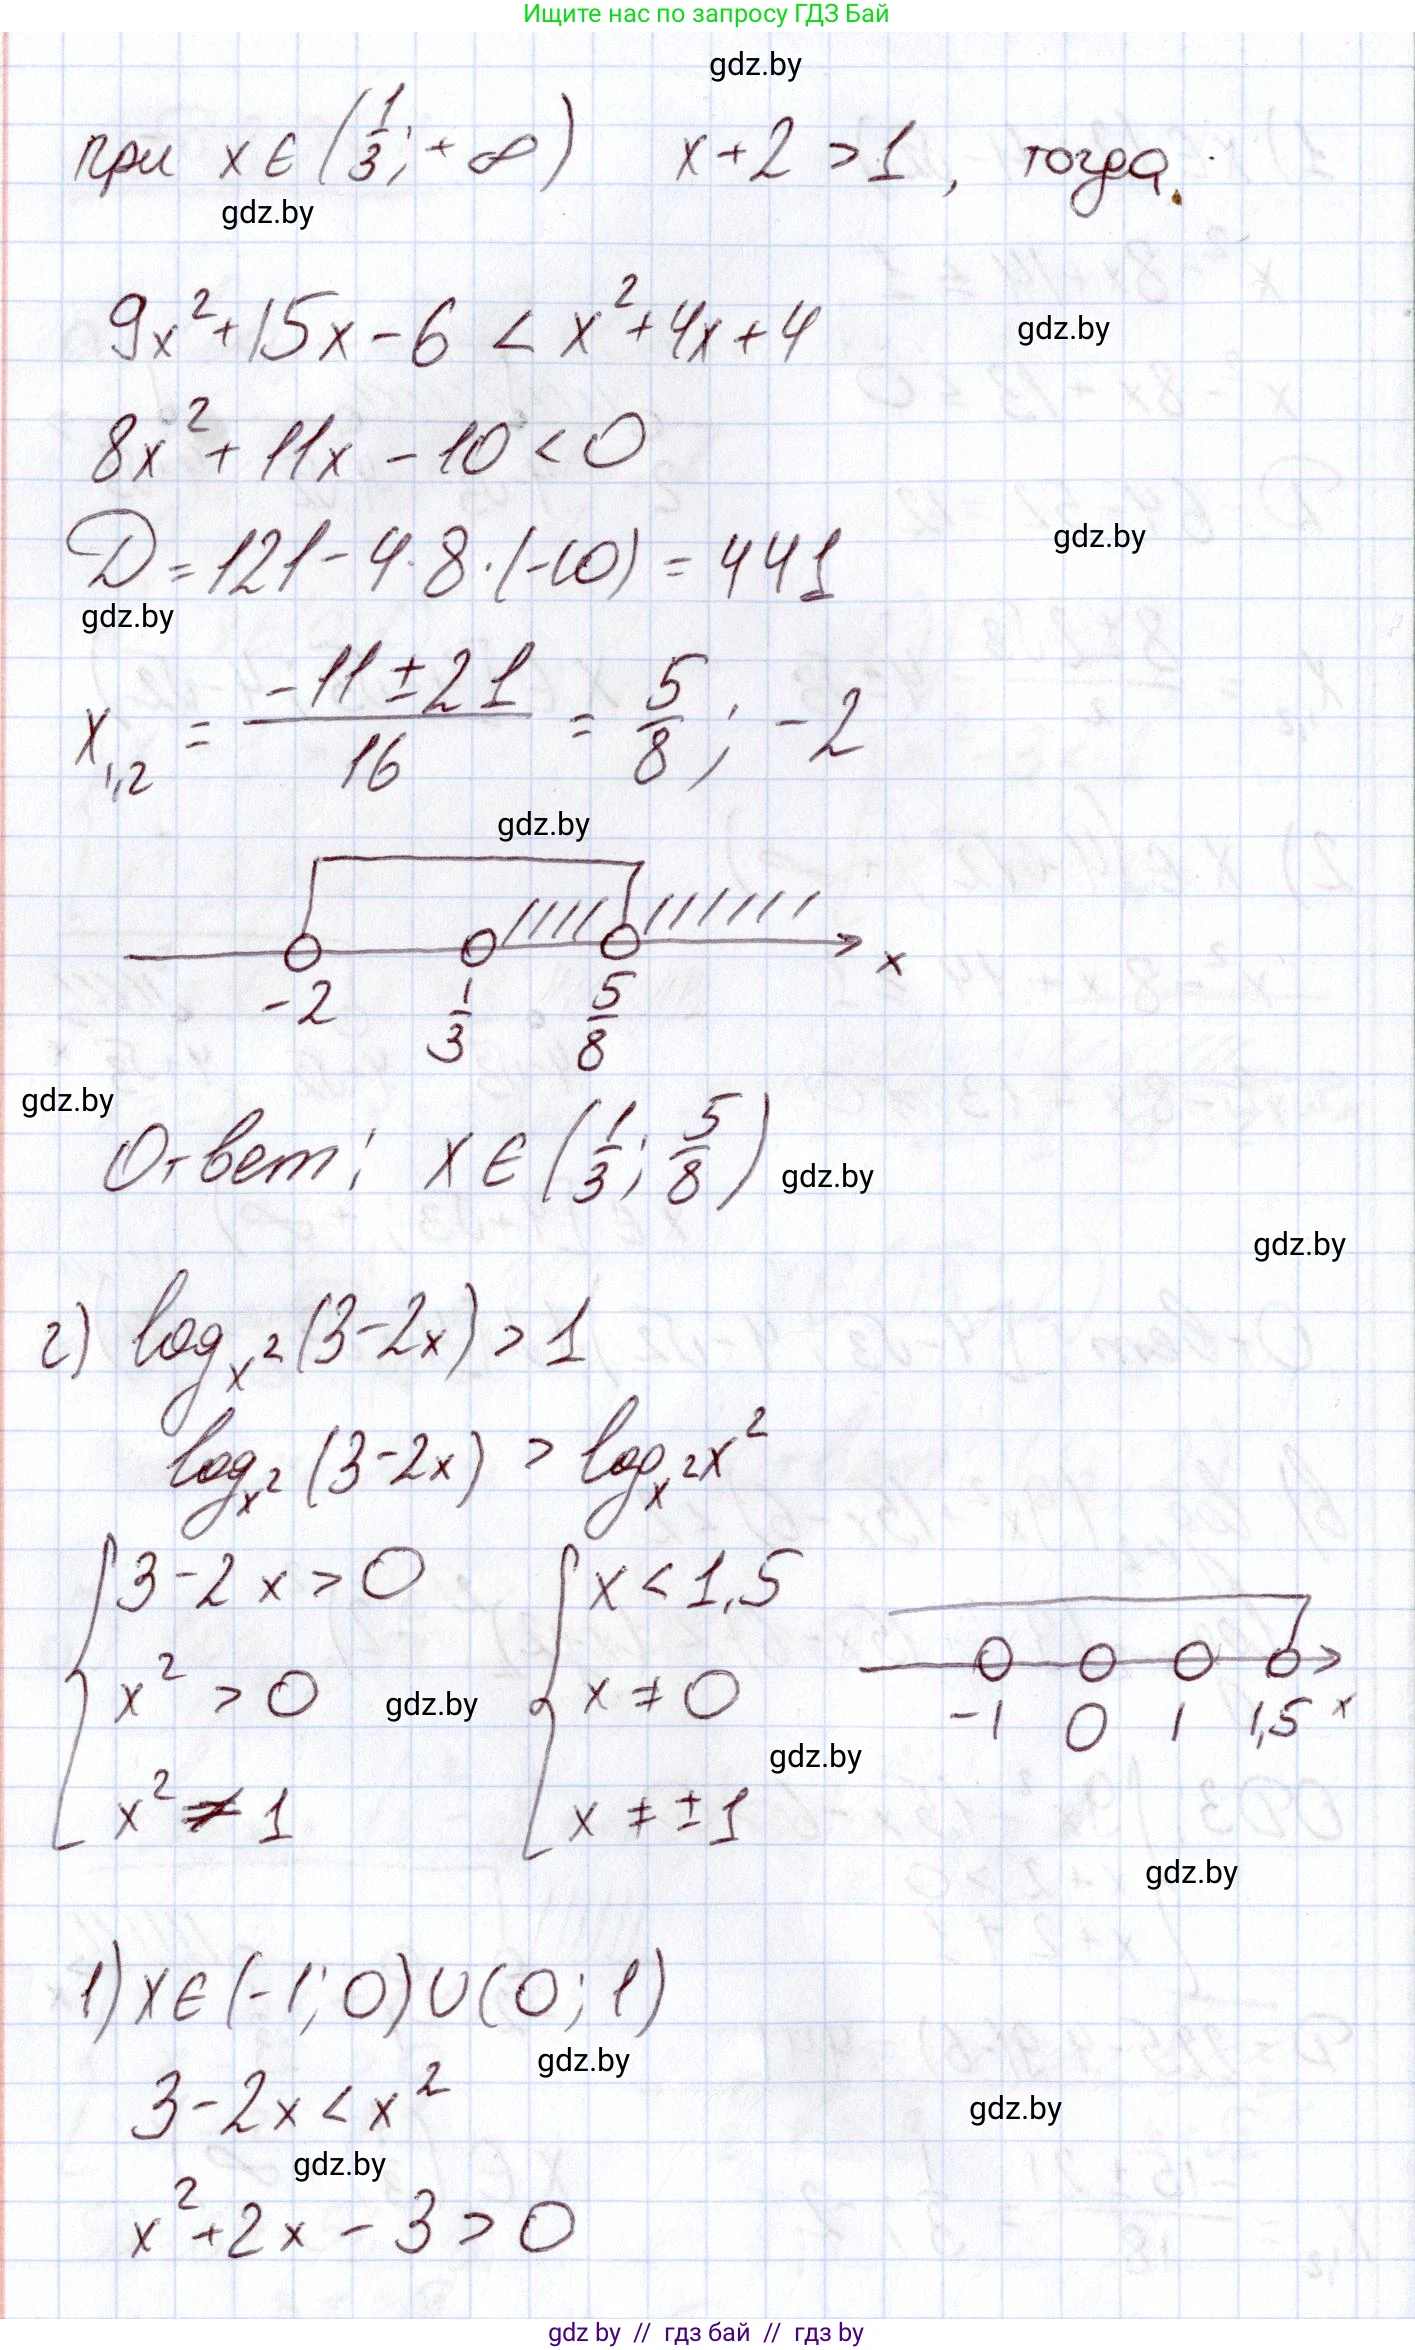 Ищите нас по запросу ГДЗ Бай
gdz.by
при x ∈ (1/3; +∞) x + 2 > 1, тогда
gdz.by
9x² + 15x − 6 < x² + 4x + 4
gdz.by
8x² + 11x − 10 < 0
gdz.by
D = 121 − 4·8·(−10) = 441
gdz.by
x₁,₂ = (−11 ± 21)/16 = 5/8; −2
gdz.by
x
−2 1/3 5/8
gdz.by
Ответ: x ∈ (1/3; 5/8)
gdz.by
gdz.by
г) log_{x²}(3−2x) > 1
log_{x²}(3−2x) > log_{x²} x²
{ 3−2x > 0 { x < 1,5
x² > 0 x ≠ 0
−1 0 1 1,5 x
gdz.by
gdz.by
x² ≠ 1 x ≠ ±1
gdz.by
1) x ∈ (−1; 0) ∪ (0; 1)
gdz.by
3−2x < x²
gdz.by
gdz.by
x² + 2x − 3 > 0
gdz by // гдз бай // гдз by